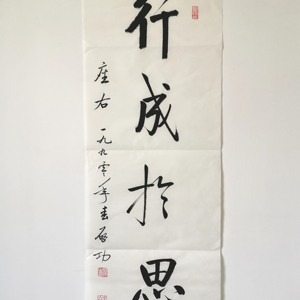 行成於思
座右 一九九零年春 启功